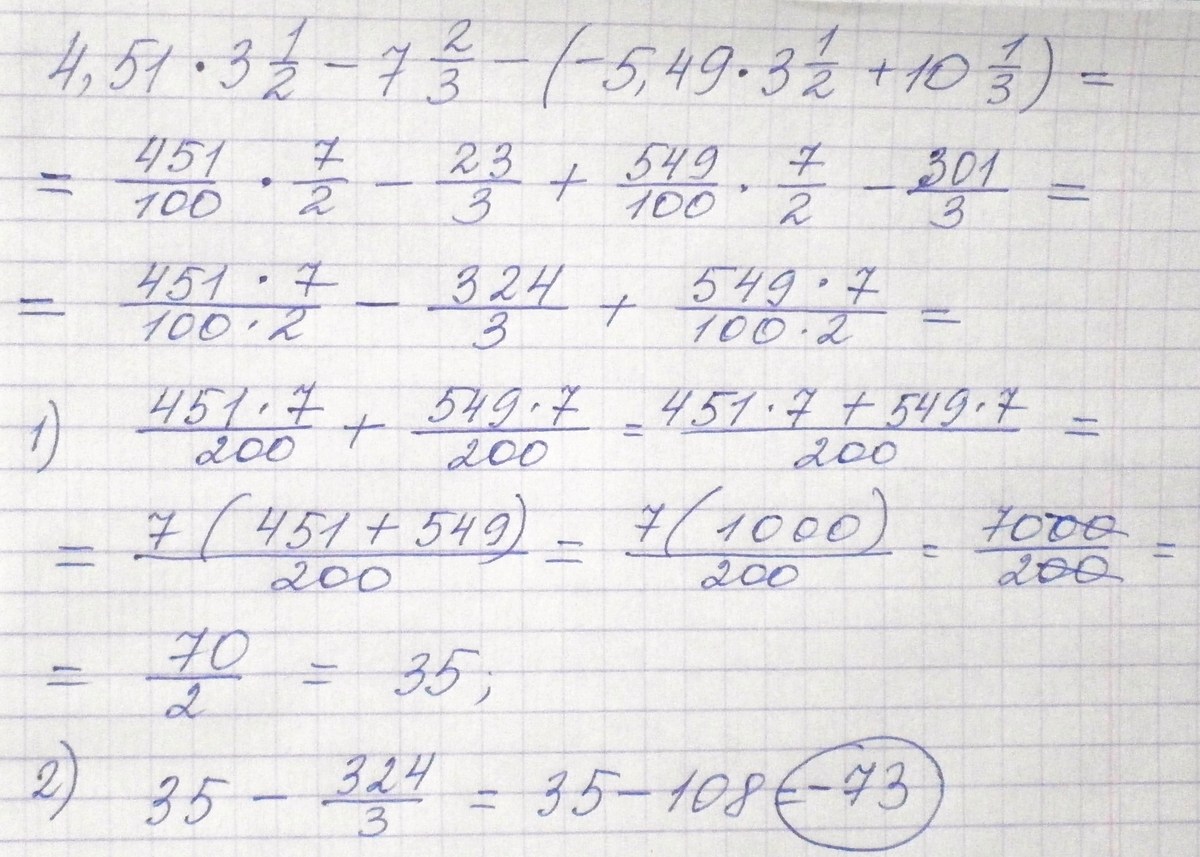 4,51 · 3 1/2 − 7 2/3 − (−5,49 · 3 1/2 + 10 1/3) =
= 451/100 · 7/2 − 23/3 + 549/100 · 7/2 − 301/3 =
= 451 · 7/100 · 2 − 324/3 + 549 · 7/100 · 2 =
1) 451 · 7/200 + 549 · 7/200 = 451 · 7 + 549 · 7/200 =
= 7 (451 + 549)/200 = 7 (1000)/200 = 7000/200 =
= 70/2 = 35;
2) 35 − 324/3 = 35 − 108 = −73